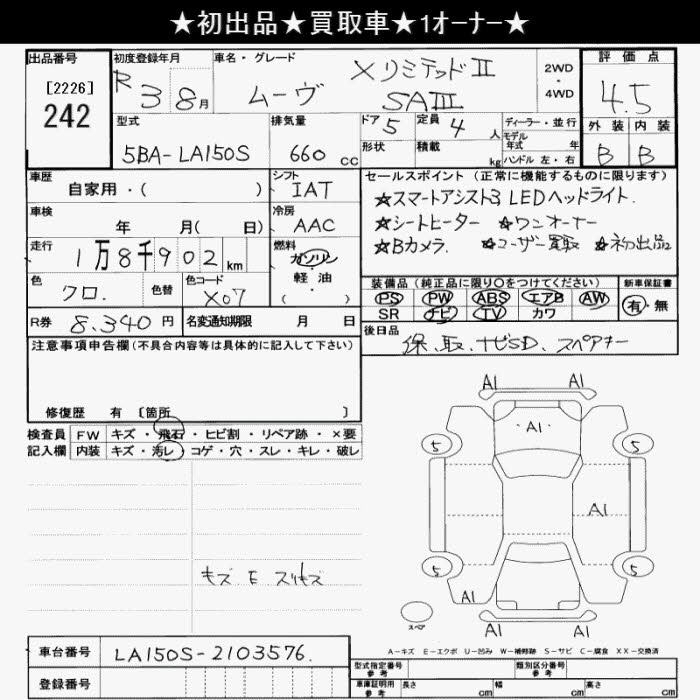 ★初出品★買取車★1オーナー★
出品番号 [2226] 242
初度登録年月 R 3年 8月
車名・グレード ムーヴ XリミテッドⅡ SAⅢ
2WD・4WD
評価点 4.5
外装 B 内装 B
型式 5BA-LA150S
排気量 660 cc
ドア 5 形状
定員 4人 積載 kg
ディーラー・並行
モデル年式 年
ハンドル 左・右
車歴 自家用・( )
シフト IAT
車検 年 月( 日)
冷房 AAC
走行 1万8千902 km
燃料 ガソリン 軽油 ( )
色 クロ. 色替
色コード X07
R券 8,340円
名変通知期限 月 日
セールスポイント (正常に機能するものに限ります)
☆スマートアシスト3 LEDヘッドライト.
☆シートヒーター ☆ワンオーナー
☆Bカメラ. ☆ユーザー買取 ☆初出品
装備品(純正品に限り〇をつけてください)
PS PW ABS エアB AW
SR ナビ TV カワ
新車保証書
有・無
後日品
保、取、ナビSD、スペアキー
注意事項申告欄(不具合内容等は具体的に記入して下さい)
修復歴 有 [箇所 ]
検査員記入欄
FW キズ・飛石・ヒビ割・リペア跡・×要
内装 キズ・汚レ・コゲ・穴・スレ・キレ・破レ
キズ E スリキズ
A1 A1
A1
5 5
A1
5 5
A1
スペア
A1 A1
A-キズ E-エクボ U-凹み W-補修跡 S-サビ C-腐食 XX-交換済
車台番号 LA150S-2103576.
登録番号
型式指定番号 参考
類別区分番号 参考
車庫証明用 参考 長さ cm 幅 cm 高さ cm